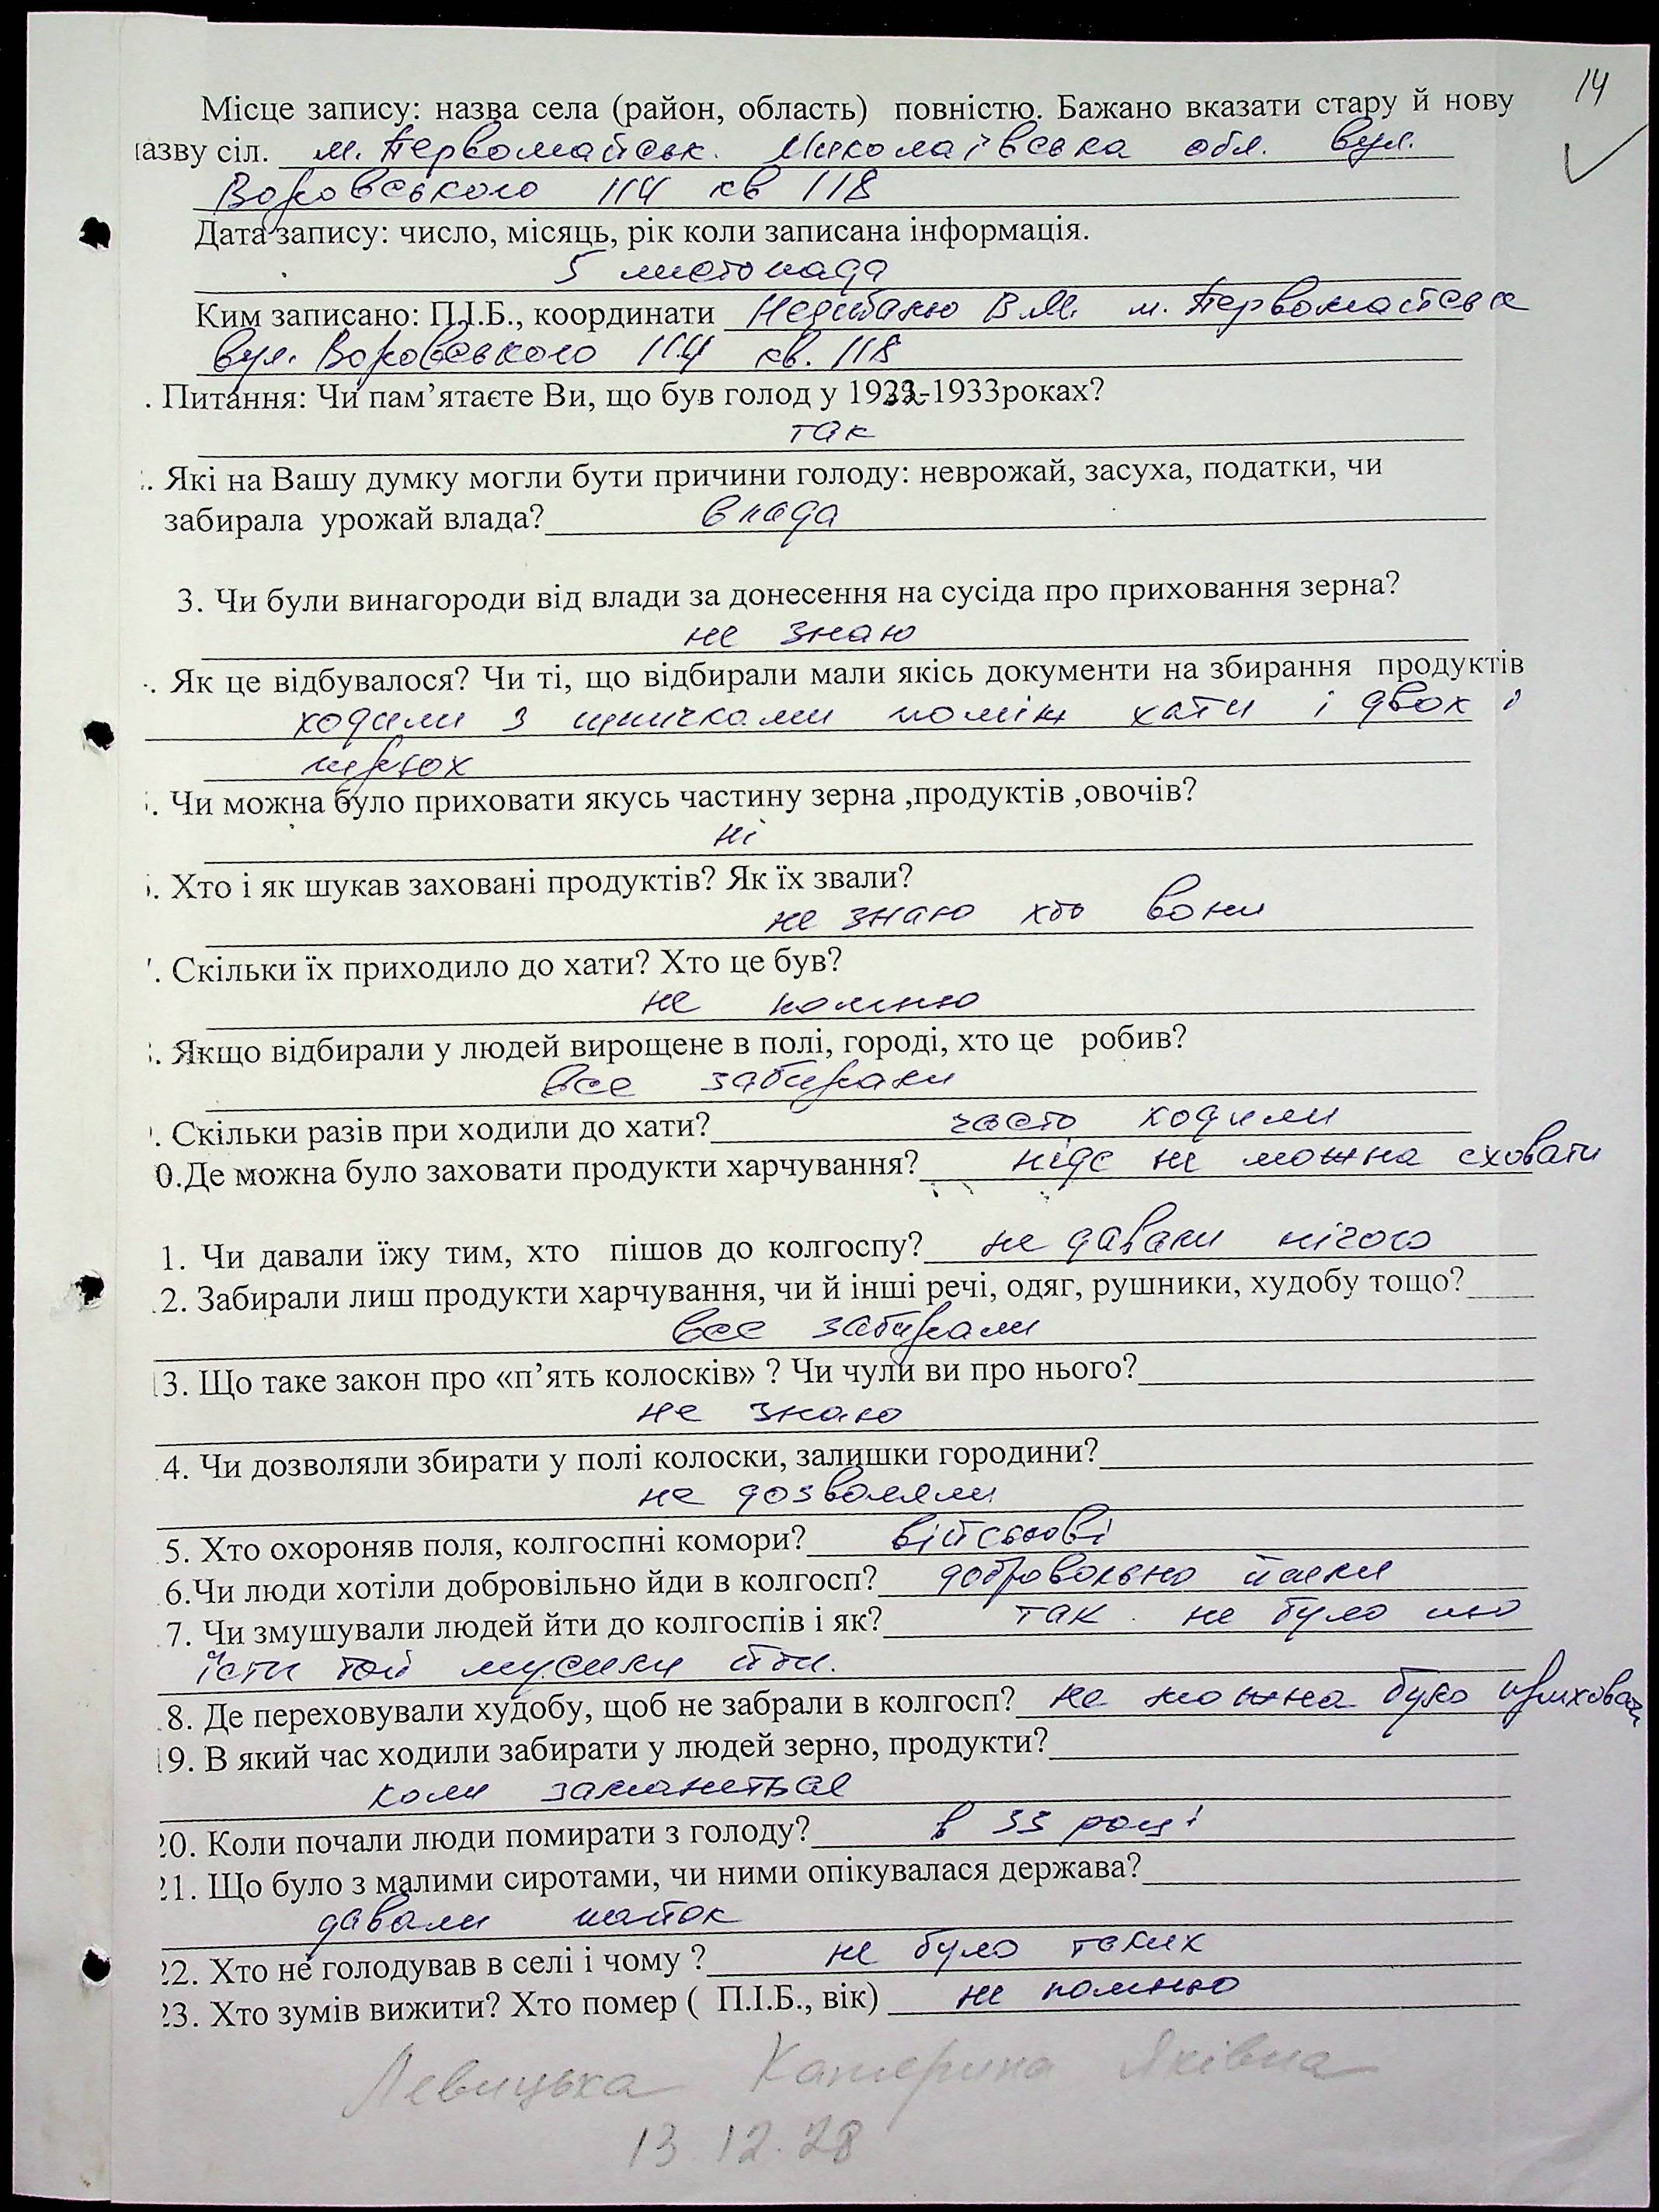 14
Місце запису: назва села (район, область) повністю. Бажано вказати стару й нову
назву сіл. м. Первомайськ. Миколаївська обл. вул.
Воровського 114 кв 118
Дата запису: число, місяць, рік коли записана інформація.
5 листопада
Ким записано: П.І.Б., координати В.М. м. Первомайськ
вул. Воровського 114 кв. 118
. Питання: Чи пам’ятаєте Ви, що був голод у 1932-1933роках?
так
. Які на Вашу думку могли бути причини голоду: неврожай, засуха, податки, чи
забирала урожай влада? влада
3. Чи були винагороди від влади за донесення на сусіда про приховання зерна?
не знаю
. Як це відбувалося? Чи ті, що відбирали мали якісь документи на збирання продуктів
ходили з щничками помін хати і двох і
. Чи можна було приховати якусь частину зерна ,продуктів ,овочів?
ні
. Хто і як шукав заховані продуктів? Як їх звали?
не знаю хто вони
. Скільки їх приходило до хати? Хто це був?
не помню
. Якщо відбирали у людей вирощене в полі, городі, хто це робив?
все забирали
. Скільки разів при ходили до хати? часто ходили
0.Де можна було заховати продукти харчування? ніде не можна сховати
1. Чи давали їжу тим, хто пішов до колгоспу? не давали нічого
.2. Забирали лиш продукти харчування, чи й інші речі, одяг, рушники, худобу тощо?
все забирали
13. Що таке закон про «п’ять колосків» ? Чи чули ви про нього?
не знаю
.4. Чи дозволяли збирати у полі колоски, залишки городини?
не дозволяли
.5. Хто охороняв поля, колгоспні комори? військові
.6.Чи люди хотіли добровільно йди в колгосп? добровольно йшли
.7. Чи змушували людей йти до колгоспів і як? так. не було шо
їсти той мусили йти.
.8. Де переховували худобу, щоб не забрали в колгосп? не можна було приховати
19. В який час ходили забирати у людей зерно, продукти?
коли заманеться
20. Коли почали люди помирати з голоду? в 33 році
21. Що було з малими сиротами, чи ними опікувалася держава?
давали пайок
22. Хто не голодував в селі і чому ? не було таких
23. Хто зумів вижити? Хто помер ( П.І.Б., вік) не помню
Левицька Катерина Яківна
13.12.28